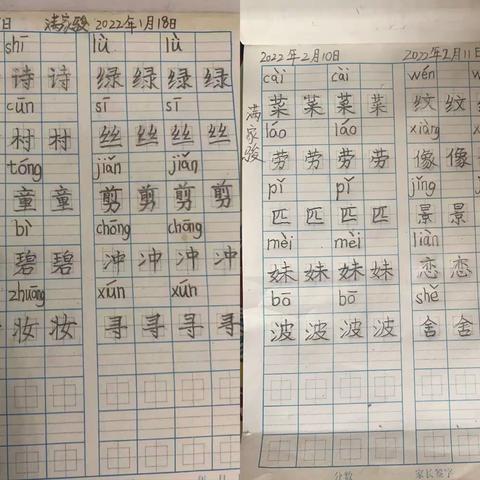 日 满家骏 2022年1月18日
shī lǜ lǜ
诗 诗 绿 绿 绿 绿
cūn sī sī
村 村 丝 丝 丝 丝
tóng jiǎn jiǎn
童 童 剪 剪 剪 剪
bì chōng chōng
碧 碧 冲 冲 冲 冲
zhuāng xún xún
妆 妆 寻 寻 寻 寻
2022年2月10日 2022年2月11日
满家骏
cài cài wén
菜 菜 菜 菜 纹 纹
láo láo xiàng
劳 劳 劳 劳 像 像
pǐ pǐ jǐng
匹 匹 匹 匹 景 景
mèi mèi liàn
妹 妹 妹 妹 恋 恋
bō bō shě
波 波 波 波 舍 舍
分数 家长签字